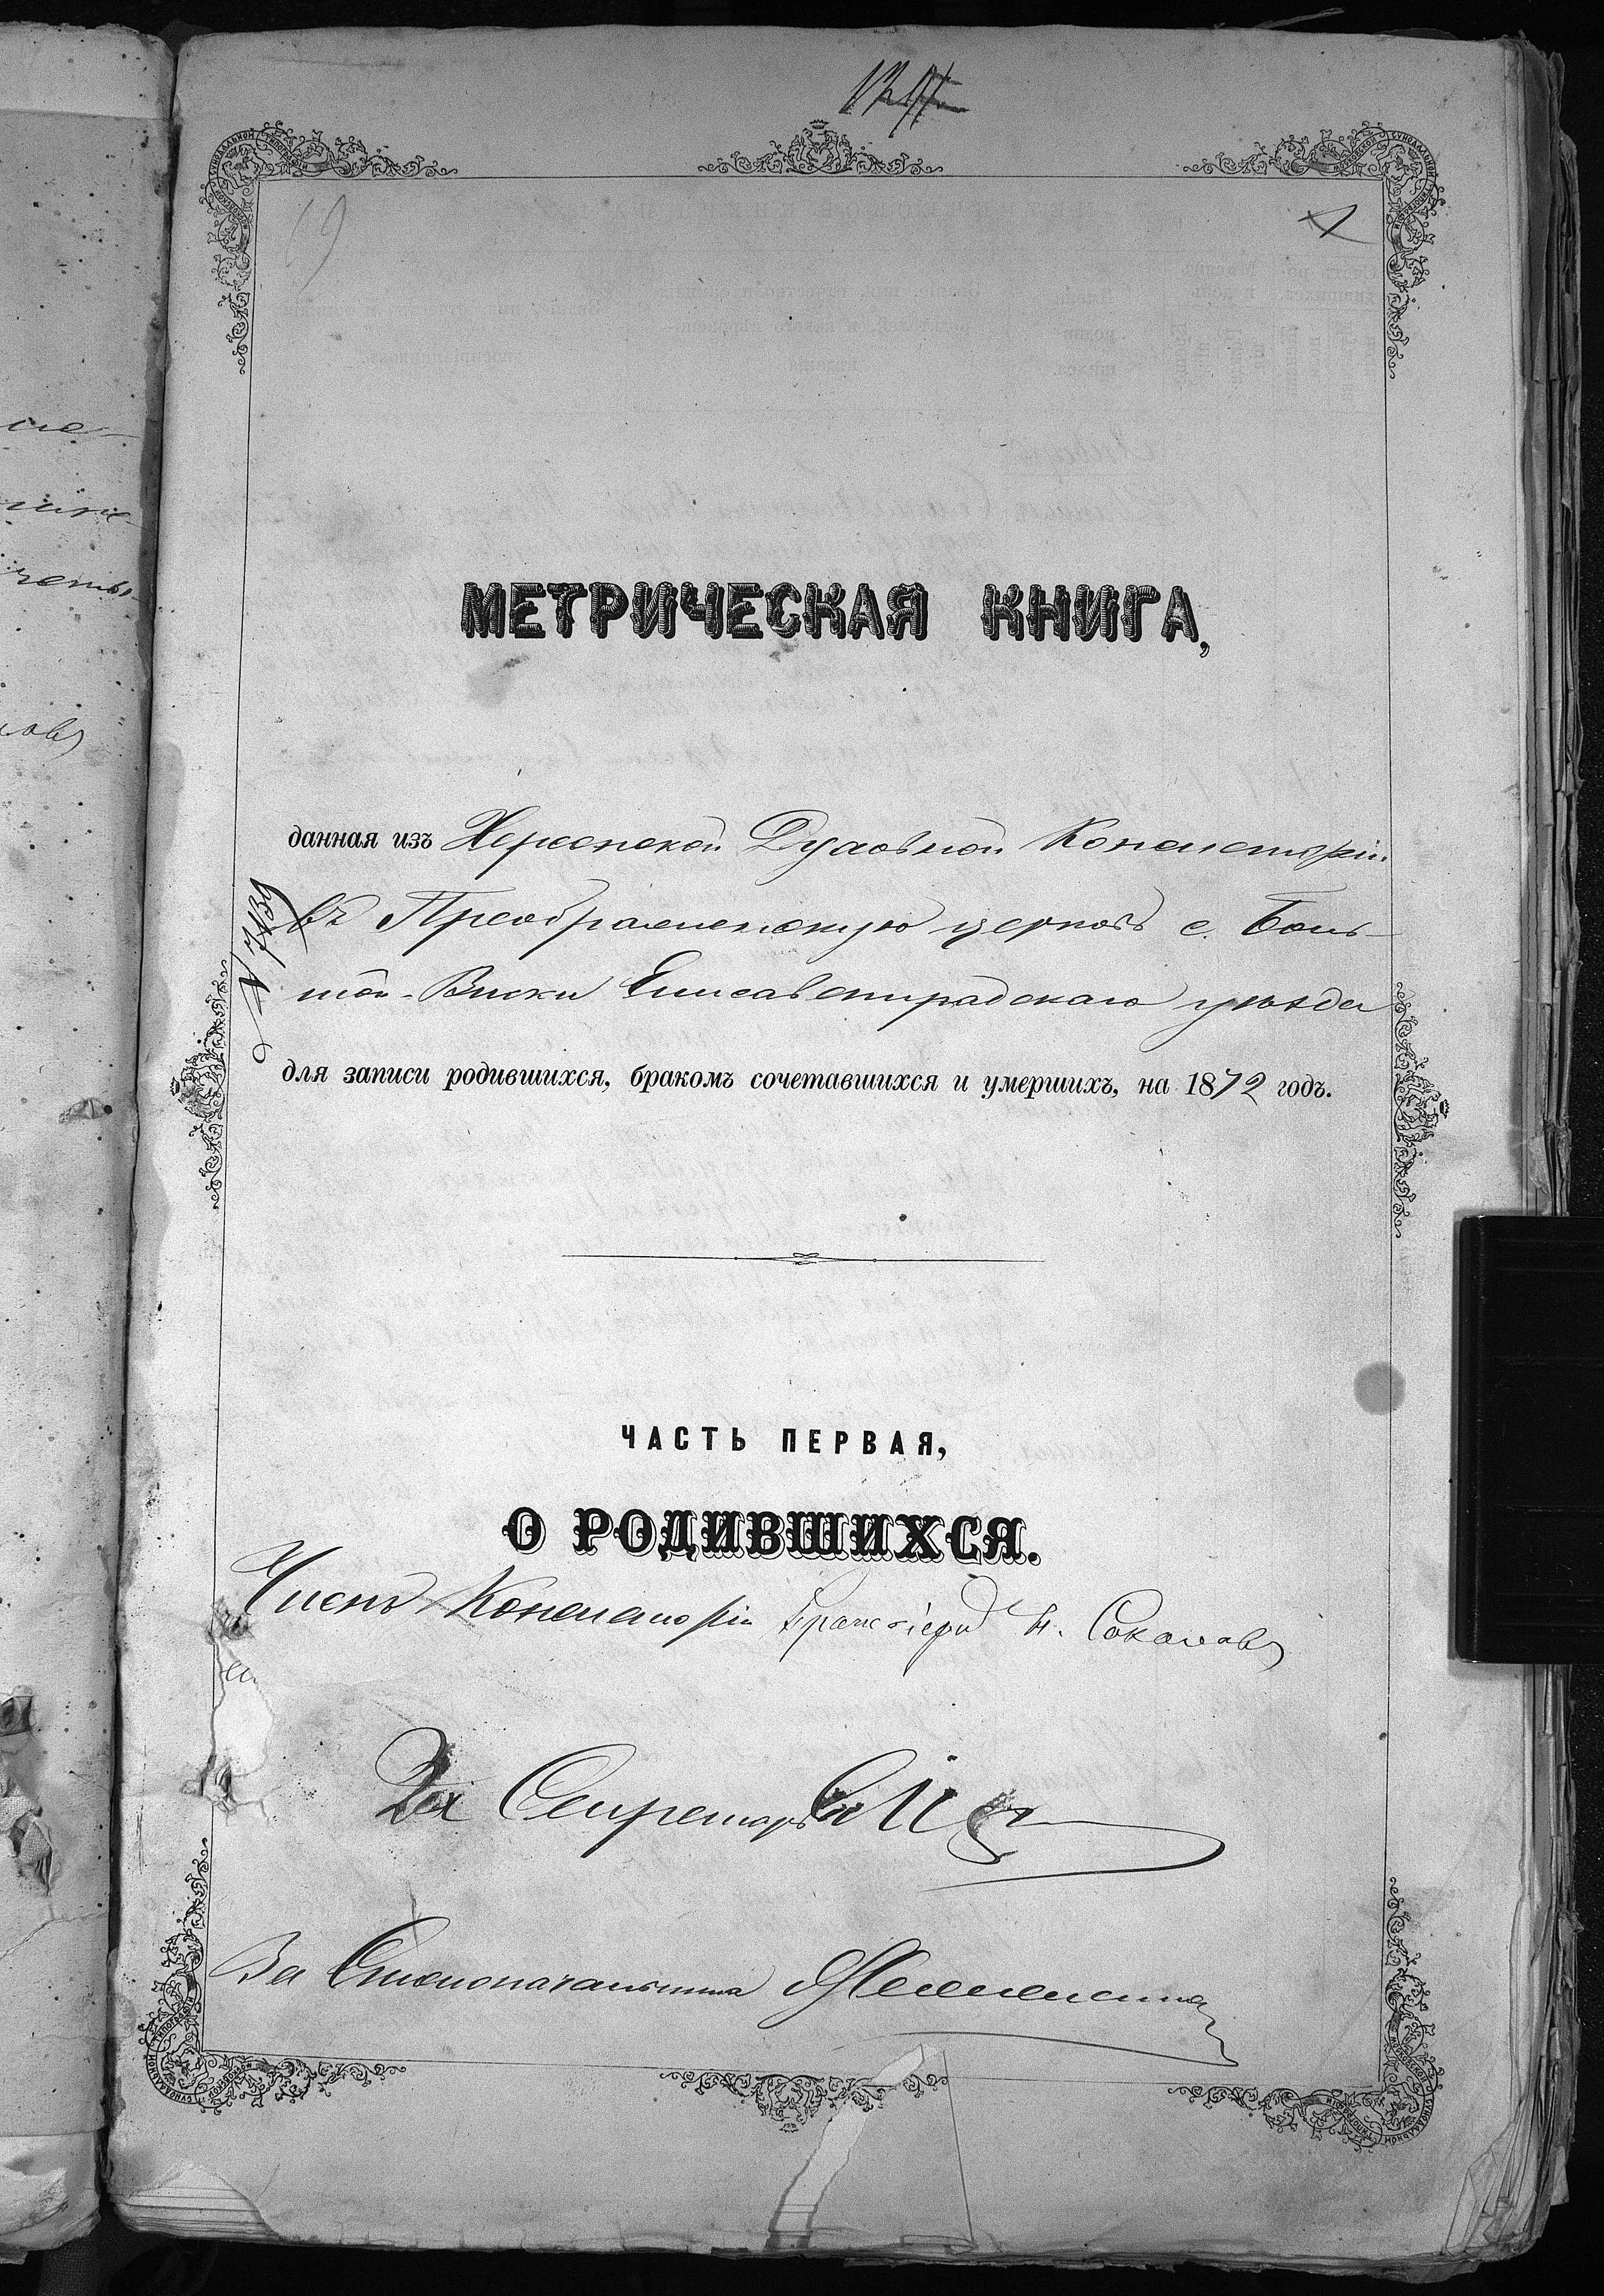 19
1
МЕТРИЧЕСКАЯ КНИГА,
данная изъ Херсонской Духовной Консисторіи
въ Преображенскую церковь с. Боль-
шой-Виски Елисаветградскаго уѣзда
для записи родившихся, бракомъ сочетавшихся и умершихъ, на 1872 годъ.
№ 7439
ЧАСТЬ ПЕРВАЯ,
О РОДИВШИХСЯ.
Членъ Консисторіи Протоіерей Н. Соколовъ
За Секретаря
За Столоначальника